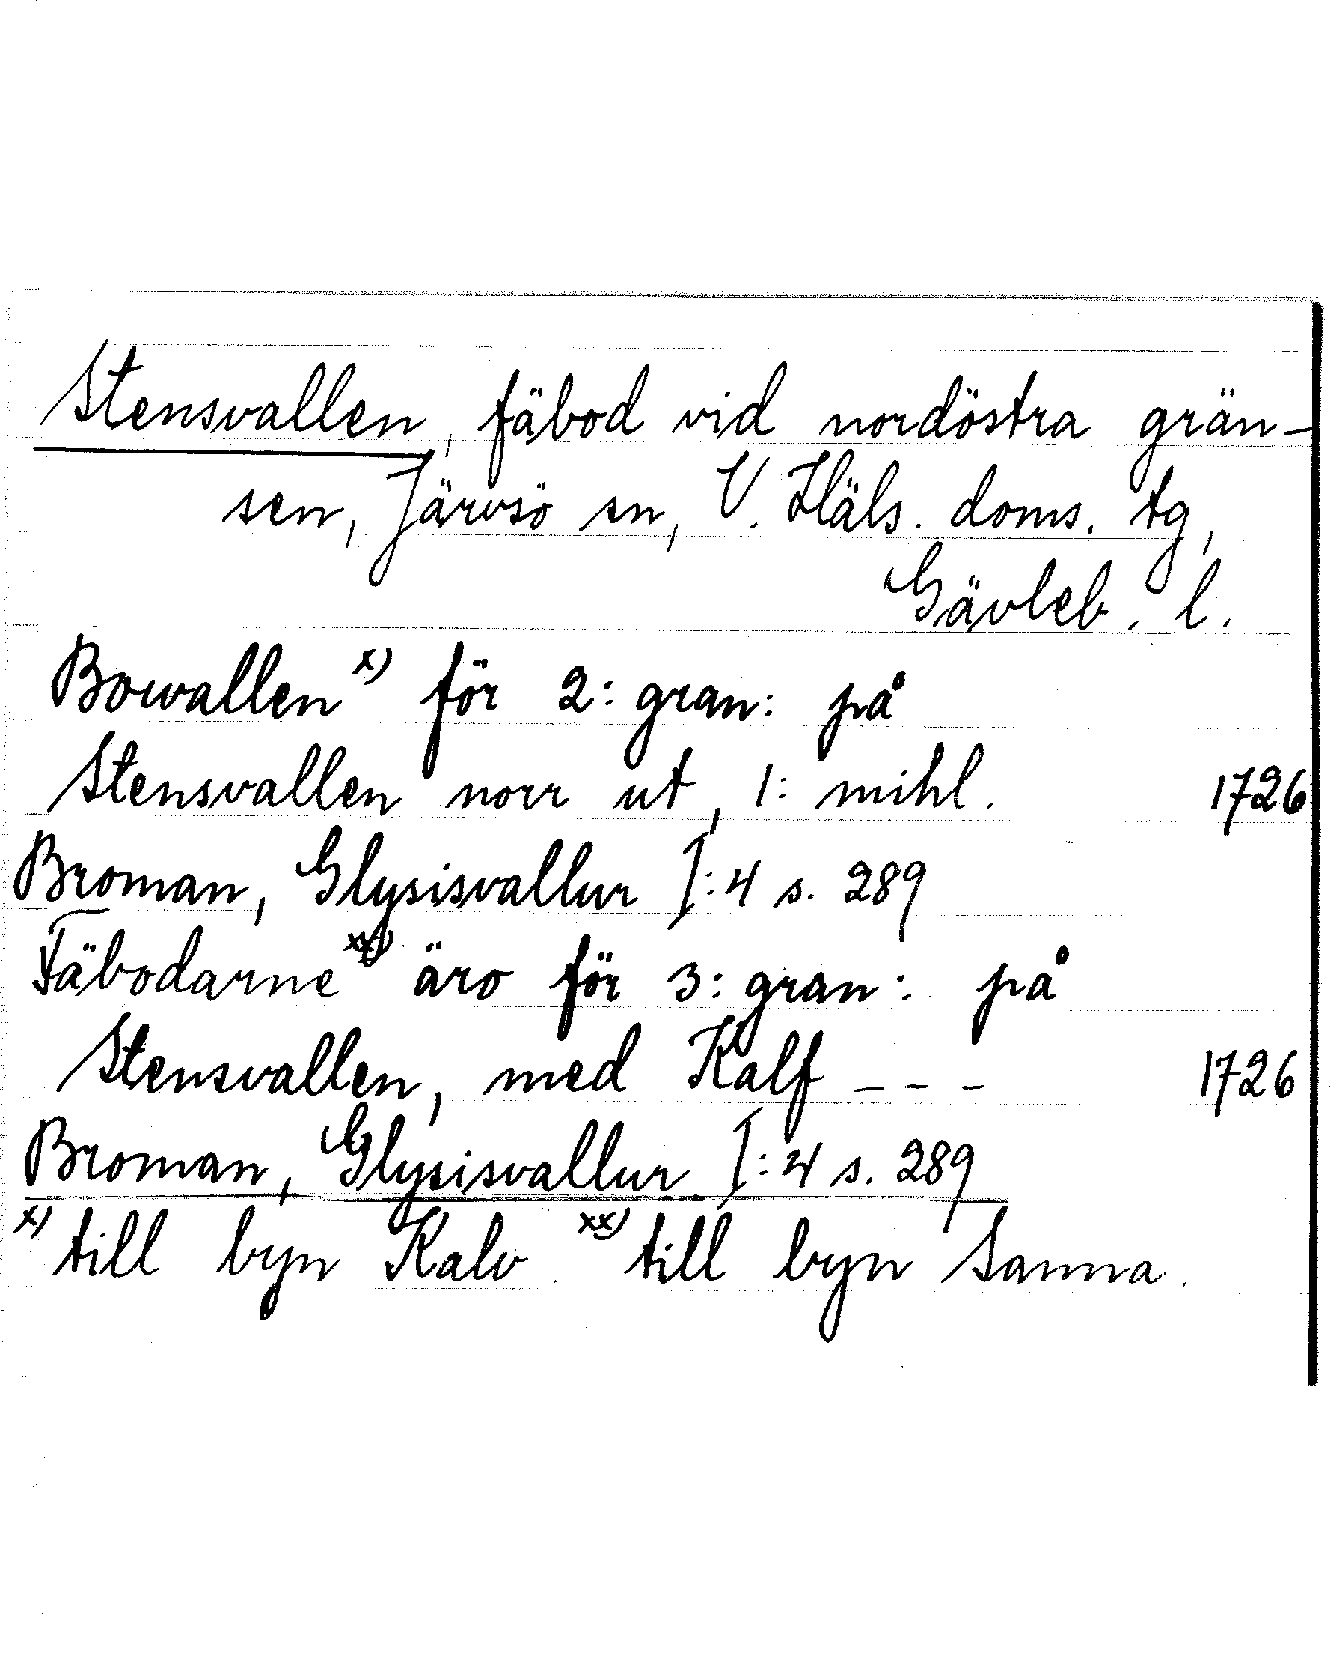 Stensvallen, fäbod vid nordöstra grän-
sen, Järvsö sn, V. Häls. doms. tg,
Gävleb. l.
Bowallen x) för 2: gran: på
Stensvallen norr ut, 1: mihl. 1726
Broman, Glysisvallur I:4 s. 289
Fäbodarne xx) äro för 3: gran: på
Stensvallen, med Kalf - - - 1726
Broman, Glysisvallur I:4 s. 289
x) till byn Kalv. xx) till byn Sanna.